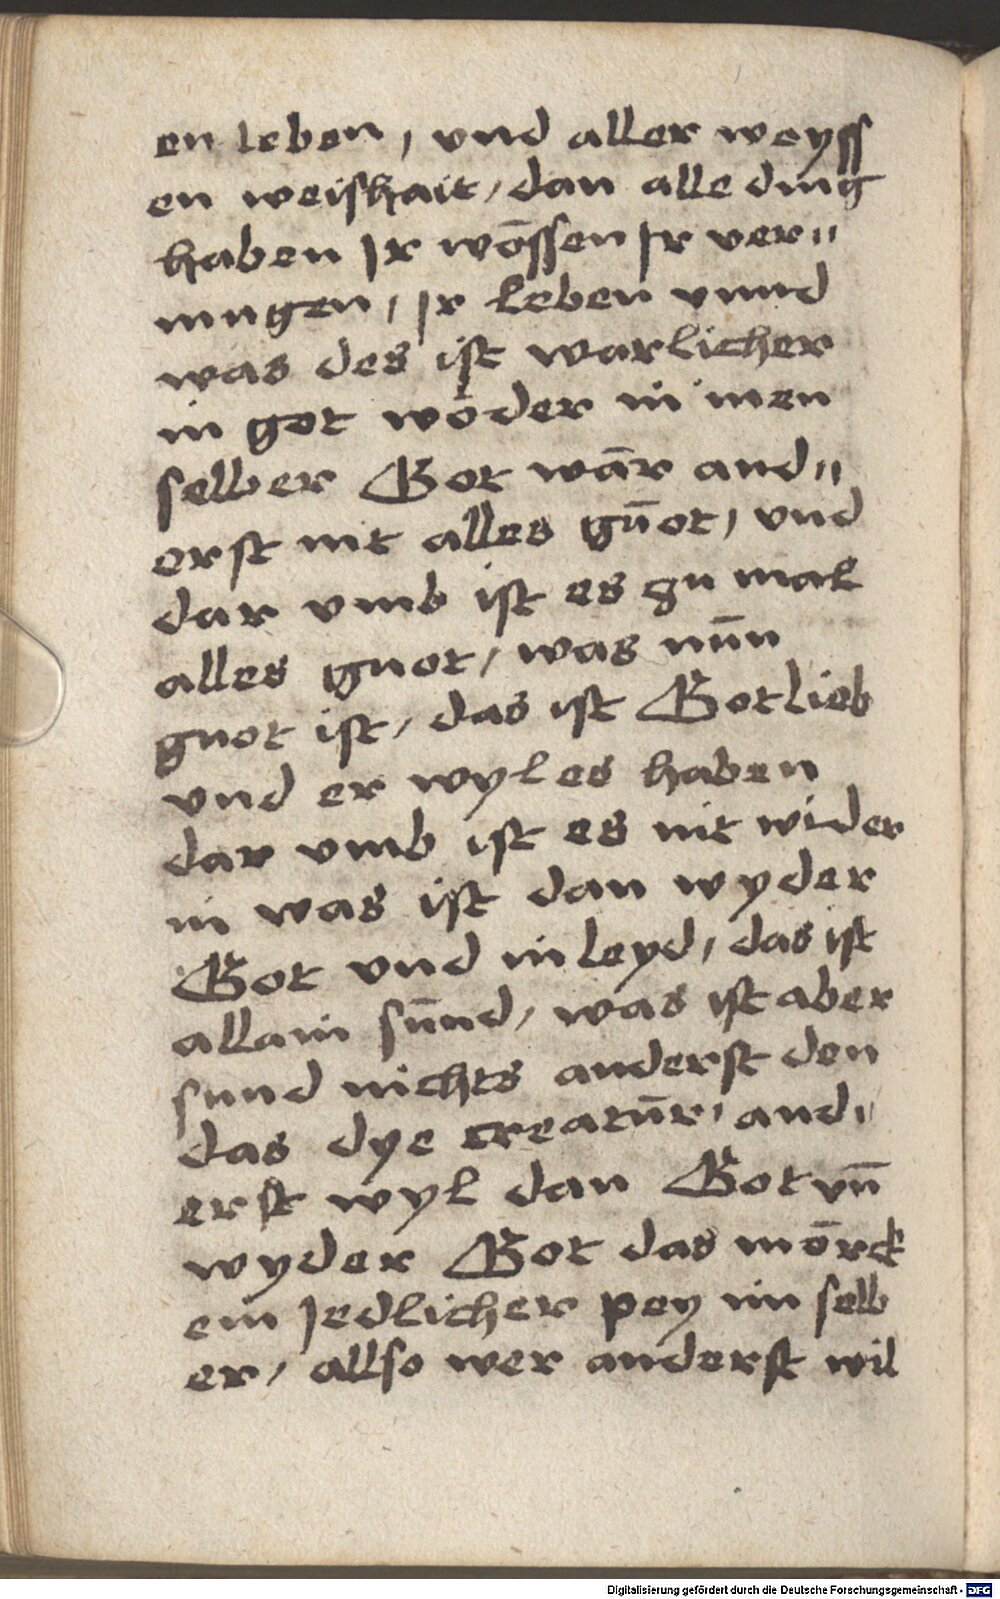 en leben, vnd aller weyss
en weishait, dan alle ding
haben Ir wo̅ssen Ir ver„
mugen, Ir leben vnnd
was des ist warlicher
in got wo̅der in inen
selber Got wa̅r and„
erst nit alles gu̅ot, vnd
dar vmb ist es zu mal
alles guot, was nu̅n
guot ist, das ist Got lieb
vnd er wyl es haben
dar vmb ist es nit wider
in was ist dan wyder
Got vnd in leyd, das ist
allain su̅nd, was ist aber
sund nichts anderst den
das dye creatu̅r, and„
erst wyl dan Got vn̅
wyder Got das mo̅rck
ein Iedlicher pey im selb
er, allso wer anderst wil
Digitalisierung gefördert durch die Deutsche Forschungsgemeinschaft - DFG